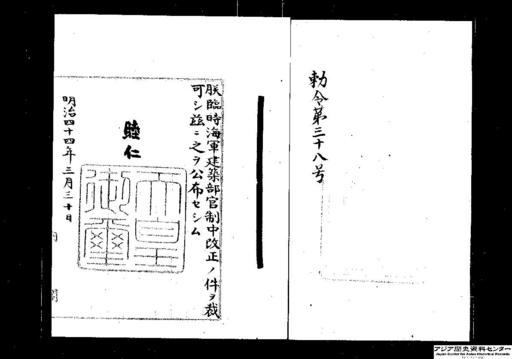 勅令第三十八号
朕臨時海軍建築部官制中改正ノ件ヲ裁
可シ茲ニ之ヲ公布セシム
睦仁
天皇御璽
明治四十四年三月三十日
内閣
アジア歴史資料センター
Japan Center for Asian Historical Records